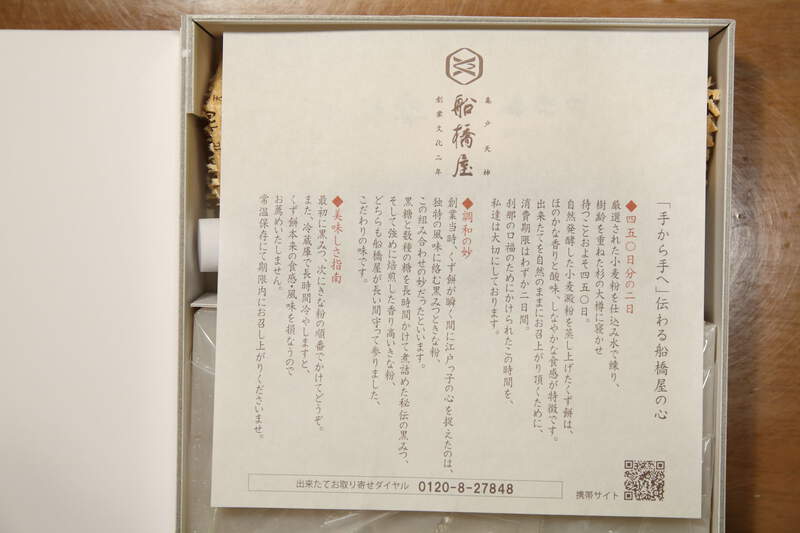 亀戸天神
船橋屋
創業文化二年
「手から手へ」伝わる船橋屋の心
◆四五〇日分の二日
厳選された小麦粉を仕込み水で練り、
樹齢を重ねた杉の大樽に寝かせ
待つことおよそ四五〇日。
自然発酵した小麦澱粉を蒸し上げたくず餅は、
ほのかな香りと酸味、しなやかな食感が特徴です。
出来たてを自然のままにお召上がり頂くために、
消費期限はわずか二日間。
刹那の口福のためにかけられたこの時間を、
私達は大切にしております。
◆調和の妙
創業当時、くず餅が瞬く間に江戸っ子の心を捉えたのは、
独特の風味に絡む黒みつときな粉、
この組み合わせの妙だったといいます。
黒糖と数種の糖を長時間かけて煮詰めた秘伝の黒みつ、
そして強めに焙煎した香り高いきな粉、
どちらも船橋屋が長い間守って参りました、
こだわりの味です。
◆美味しさ指南
最初に黒みつ、次にきな粉の順番でかけてどうぞ。
また、冷蔵庫で長時間冷やしますと、
くず餅本来の食感・風味を損なうので
お薦めいたしません。
常温保存にて期限内にお召し上がりくださいませ。
出来たてお取り寄せダイヤル 0120-8-27848
携帯サイト